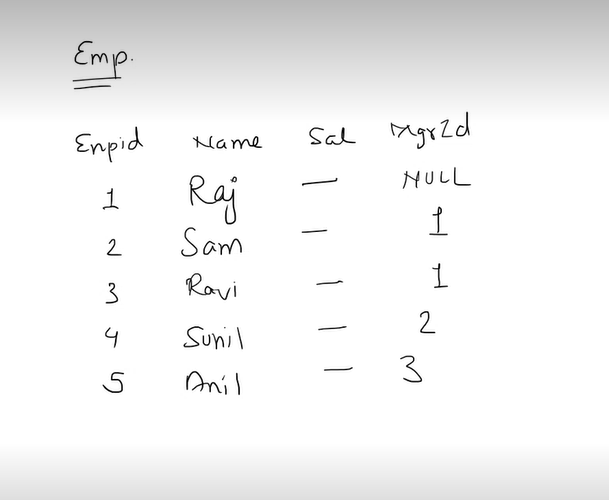 Emp.
Empid Name Sal MgrId
1 Raj — NULL
2 Sam — 1
3 Ravi — 1
4 Sunil — 2
5 Anil — 3